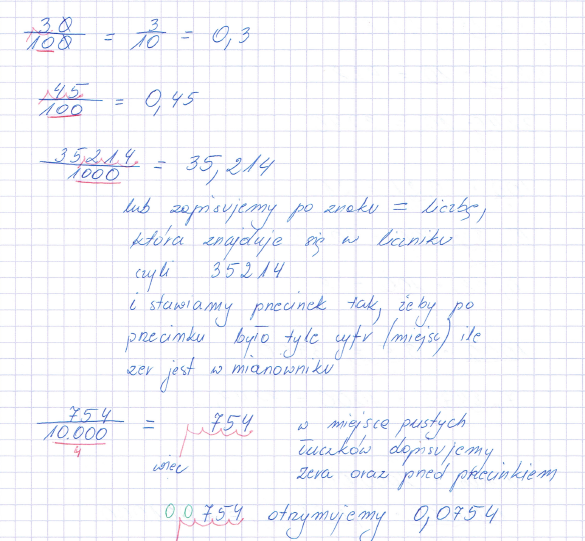 30/100 = 3/10 = 0,3
45/100 = 0,45
35214/1000 = 35,214
lub zapisujemy po znaku = liczbę,
która znajduje się w liczniku
czyli 35214
i stawiamy przecinek tak, żeby po
przecinku było tyle cyfr (miejsc) ile
zer jest w mianowniku
754/10.000 = 754 w miejsce pustych
4 łuczków dopisujemy
więc zera oraz przed przecinkiem
0,0754 otrzymujemy 0,0754